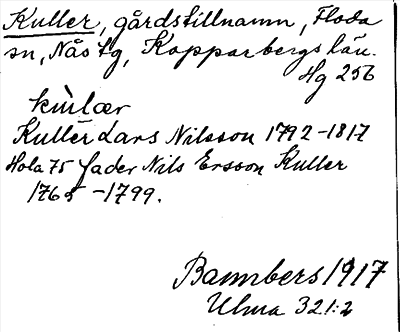 Kuller, gårdstillnamn, Floda
sn, Nås tg, Kopparbergs län.
Hg 256
Kuller Lars Nilsson 1792-1817
Hola 75 fader Nils Ersson Kuller
-1799.
1917
Ulma 321:2